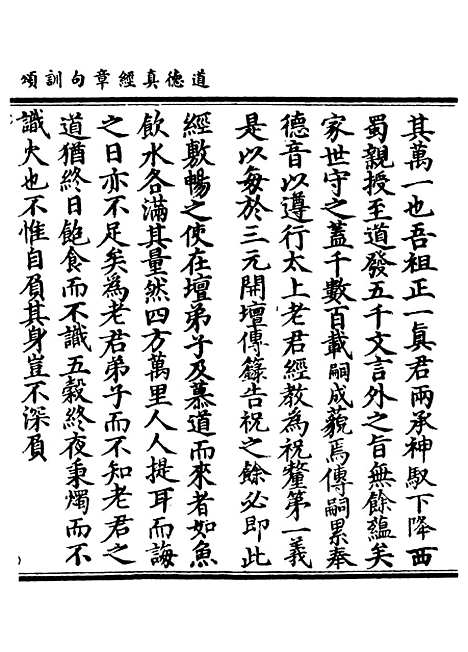 道德真經章句訓頌
其萬一也吾祖正一真君兩承神馭下降西
蜀親授至道發五千文言外之旨無餘蘊矣
家世守之蓋千數百載嗣成藐焉傳嗣累奉
德音以遵行太上老君經教為祝釐第一義
是以每於三元開壇傳籙告祝之餘必即此
經敷暢之使在壇弟子及慕道而來者如魚
飲水各滿其量然四方萬里人人提耳而誨
之日亦不足矣為老君弟子而不知老君之
道猶終日飽食而不識五穀終夜秉燭而不
識火也不惟自負其身豈不深負